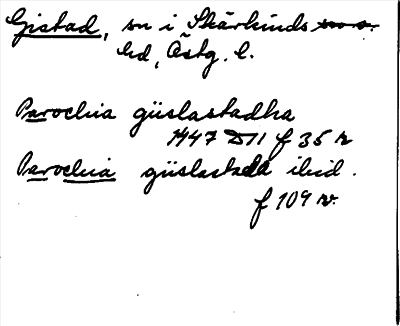 Gistad, sn i Skärkinds
hd, Östg. l.
Parochia güslastadha
1447 D11 f 35 r
Parochia güslastada ibid.
f 109 v.